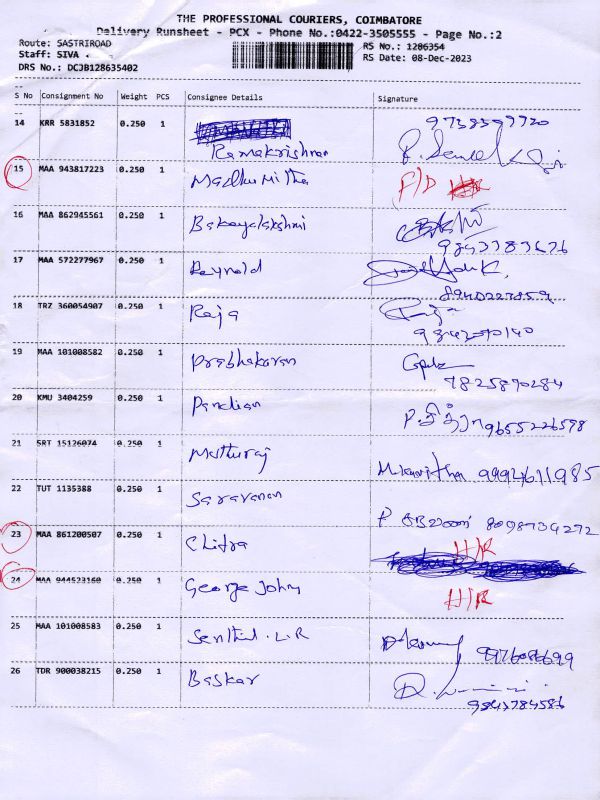 THE PROFESSIONAL COURIERS, COIMBATORE
Delivery Runsheet - PCX - Phone No.:0422-3505555 - Page No.:2
Route: SASTRIROAD
RS No.: 1286354
Staff: SIVA .
RS Date: 08-Dec-2023
DRS No.: DCJB128635402
S No Consignment No Weight PCS Consignee Details Signature
14 KRR 5831852 0.250 1
Ramakrishnan
15 MAA 943817223 0.250 1 Madhumitha F/D
16 MAA 862945561 0.250 1 Bakeyalakshmi
9843783676
17 MAA 572277967 0.250 1 Reynold
18 TRZ 360054907 0.250 1 Raja
19 MAA 101008582 0.250 1 Prabhakaran
20 KMU 3404259 0.250 1 Pandian
9655226598
21 SRT 15126074 0.250 1 Muthuraj
9994611985
22 TUT 1135388 0.250 1 Saravanan
P சரவணன் 8098704272
23 MAA 861200507 0.250 1 Chitra H/R
24 MAA 944523160 0.250 1 George John H/R
25 MAA 101008583 0.250 1 Senthil . L.R
26 TDR 900038215 0.250 1 Baskar
9843784586